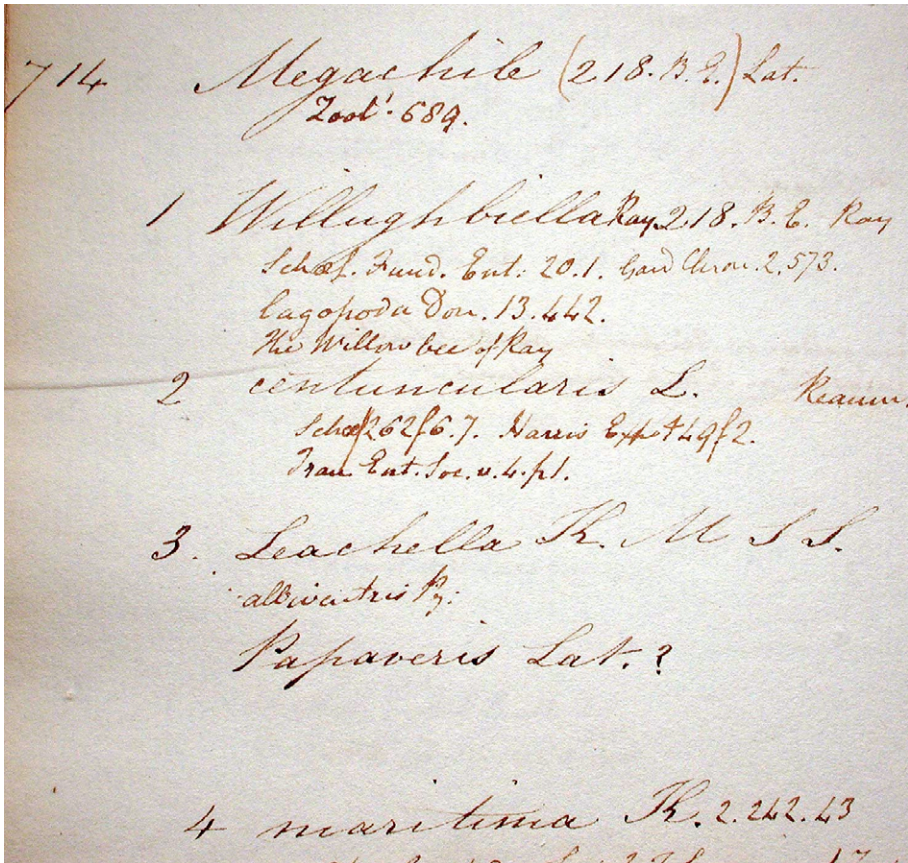 714 Megachile (218. B. E.) Lat.
Zool! 689.
1 Willughbiella Ray 218. B. E. Ray
Schæf. Fund. Ent: 20.1. Gard Chron. 2. 573.
lagopoda Don. 13. 442.
the Willow bee of Ray
2 centuncularis L. Reaum.
Schæf 262 f 6.7. Harris Exp t 49 f 2.
Tran Ent. Soc. v. 4. pl.
3. Leachella K. M S S.
albiventris
Papaveris Lat. ?
4 maritima K. 2. 242. 43